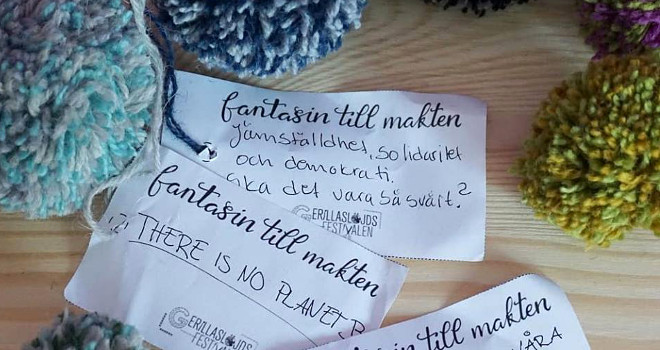 fantasin till makten
Jämställdhet, solidaritet
och demokrati.
Ska det vara så svårt?
GERILLASLÖJDS
FESTIVALEN
fantasin till makten
THERE IS NO PLANET B
GERILLASLÖJDS
FESTIVALEN
till makten
VÅRA